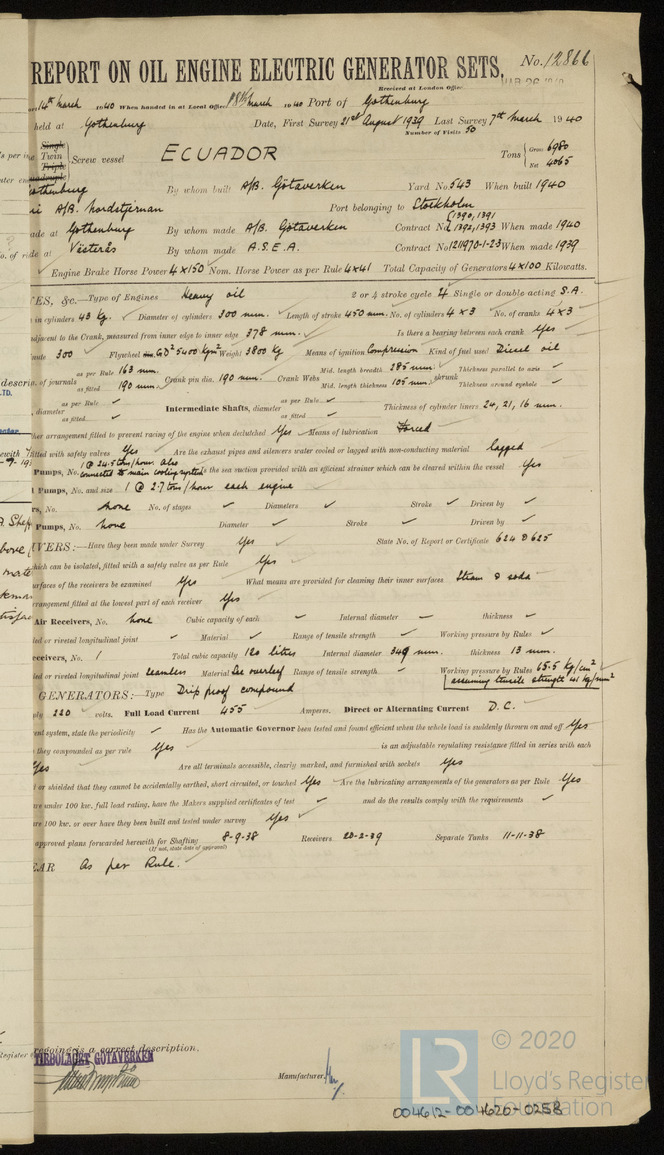 REPORT ON OIL ENGINE ELECTRIC GENERATOR SETS. No. 12866
Received at London Office
14th March 1940 When handed in at Local Office 18th March 1940 Port of Gothenburg
held at Gothenburg Date, First Survey 21st August 1939 Last Survey 7th March 1940
Number of Visits 50
Single
Twin
Triple
Quadruple
Screw vessel ECUADOR Tons Gross 6980
Net 4065
By whom built A/B. Götaverken Yard No. 543 When built 1940
A/B. Nordstjernan Port belonging to Stockholm
Gothenburg By whom made A/B. Götaverken Contract No. 1390, 1391
1392, 1393 When made 1940
Västerås By whom made A.S.E.A. Contract No. 1211970-1-23 When made 1939
Engine Brake Horse Power 4 x 150 Nom. Horse Power as per Rule 4 x 41 Total Capacity of Generators 4 x 100 Kilowatts.
&c.—Type of Engines Heavy oil 2 or 4 stroke cycle 4 Single or double acting S.A.
in cylinders 43 Kg. Diameter of cylinders 300 mm. Length of stroke 450 mm. No. of cylinders 4 x 3 No. of cranks 4 x 3
adjacent to the Crank, measured from inner edge to inner edge 378 mm. Is there a bearing between each crank Yes
300 Flywheel GD² 5400 Kgm² Weight 3800 Kg Means of ignition Compression Kind of fuel used Diesel oil
of journals as per Rule 163 mm.
as fitted 190 mm. Crank pin dia. 190 mm. Crank Webs Mid. length breadth 285 mm.
Mid. length thickness 105 mm. shrunk Thickness parallel to axis ✓
Thickness around eyehole ✓
diameter as per Rule ✓
as fitted ✓ Intermediate Shafts, diameter as per Rule ✓
as fitted ✓ Thickness of cylinder liners 24, 21, 16 mm.
arrangement fitted to prevent racing of the engine when declutched Yes Means of lubrication Forced
fitted with safety valves Yes Are the exhaust pipes and silencers water cooled or lagged with non-conducting material lagged
Pumps, No. 1 @ 24.5 tons/hour. Also
connected to main cooling system Is the sea suction provided with an efficient strainer which can be cleared within the vessel Yes
Pumps, No. and size 1 @ 2.7 tons/hour each engine
No. None No. of stages ✓ Diameters ✓ Stroke ✓ Driven by ✓
Pumps, No. None Diameter ✓ Stroke ✓ Driven by ✓
Have they been made under Survey Yes State No. of Report or Certificate 624 & 625
which can be isolated, fitted with a safety valve as per Rule Yes
surfaces of the receivers be examined Yes What means are provided for cleaning their inner surfaces Steam & soda
arrangement fitted at the lowest part of each receiver Yes
Air Receivers, No. None Cubic capacity of each ✓ Internal diameter ✓ thickness ✓
or riveted longitudinal joint ✓ Material ✓ Range of tensile strength ✓ Working pressure by Rules ✓
No. 1 Total cubic capacity 120 litres Internal diameter 349 mm. thickness 13 mm.
or riveted longitudinal joint Seamless Material See overleaf Range of tensile strength ✓ Working pressure by Rules 65.5 Kg/cm²
assuming tensile strength 41 Kg/mm²
GENERATORS:—Type Drip proof compound
220 volts. Full Load Current 455 Amperes. Direct or Alternating Current D.C.
system, state the periodicity ✓ Has the Automatic Governor been tested and found efficient when the whole load is suddenly thrown on and off Yes
they compounded as per rule Yes is an adjustable regulating resistance fitted in series with each
Yes Are all terminals accessible, clearly marked, and furnished with sockets Yes
or shielded that they cannot be accidentally earthed, short circuited, or touched Yes Are the lubricating arrangements of the generators as per Rule Yes
under 100 kw. full load rating, have the Makers supplied certificates of test ✓ and do the results comply with the requirements ✓
100 kw. or over have they been built and tested under survey Yes
approved plans forwarded herewith for Shafting 8-9-38 Receivers 20-2-39 Separate Tanks 11-11-38
(If not, state date of approval)
As per Rule.
is a correct description.
GÖTAVERKEN
Manufacturer.
LR © 2020
Lloyd's Register
Foundation
004612-004620-0258